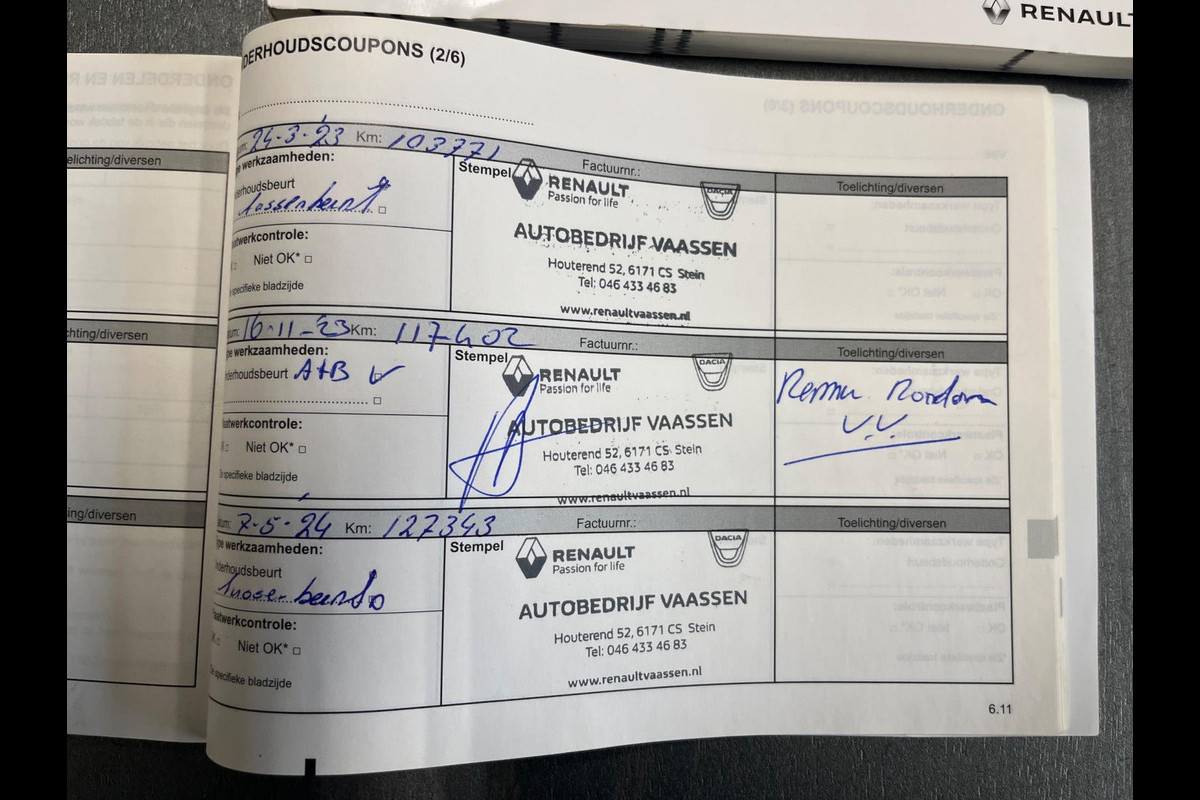 RENAULT
DERHOUDSCOUPONS (2/6)
elichting/diversen
chting/diversen
ing/diversen
24-3-'23 Km: 103771 Factuurnr.: Toelichting/diversen
pe werkzaamheden:
derhoudsbeurt
Tussenbeurt
aatwerkcontrole:
Niet OK*
specifieke bladzijde
Stempel
RENAULT
Passion for life
DACIA
AUTOBEDRIJF VAASSEN
Houterend 52, 6171 CS Stein
Tel: 046 433 46 83
www.renaultvaassen.nl
16-11-'23 Km: 117402 Factuurnr.: Toelichting/diversen
pe werkzaamheden:
nderhoudsbeurt A+B
aatwerkcontrole:
Niet OK*
specifieke bladzijde
Stempel
RENAULT
Passion for life
DACIA
AUTOBEDRIJF VAASSEN
Houterend 52, 6171 CS Stein
Tel: 046 433 46 83
www.renaultvaassen.nl
Remm Rondom
V.V.
7-5-'24 Km: 127343 Factuurnr.: Toelichting/diversen
pe werkzaamheden:
nderhoudsbeurt
Tussenbeurt
aatwerkcontrole:
Niet OK*
specifieke bladzijde
Stempel
RENAULT
Passion for life
DACIA
AUTOBEDRIJF VAASSEN
Houterend 52, 6171 CS Stein
Tel: 046 433 46 83
www.renaultvaassen.nl
6.11